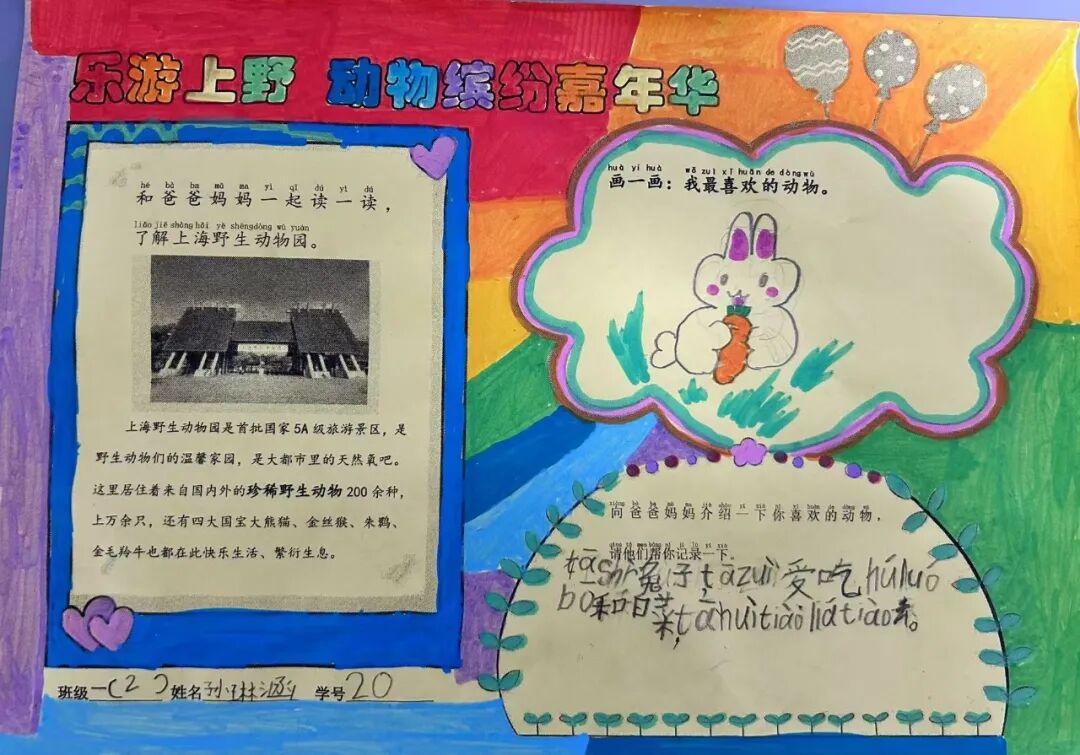 乐游上野 动物缤纷嘉年华
hé bà ba mā ma yì qǐ dú yì dú
和爸爸妈妈一起读一读，
liǎo jiě shàng hǎi yě shēng dòng wù yuán
了解上海野生动物园。
上海野生动物园是首批国家5A级旅游景区，是
野生动物们的温馨家园，是大都市里的天然氧吧。
这里居住着来自国内外的珍稀野生动物200余种，
上万余只，还有四大国宝大熊猫、金丝猴、朱鹮、
金毛羚牛也都在此快乐生活、繁衍生息。
班级一（2）姓名孙琳涵 学号20
huà yi huà wǒ zuì xǐ huān de dòng wù
画一画：我最喜欢的动物。
向爸爸妈妈介绍一下你喜欢的动物，
请他们帮你记录一下。
tā shì 兔子，tā zuì 爱吃 hú luó
bo 和白菜，tā huì tiào lái tiào 去。